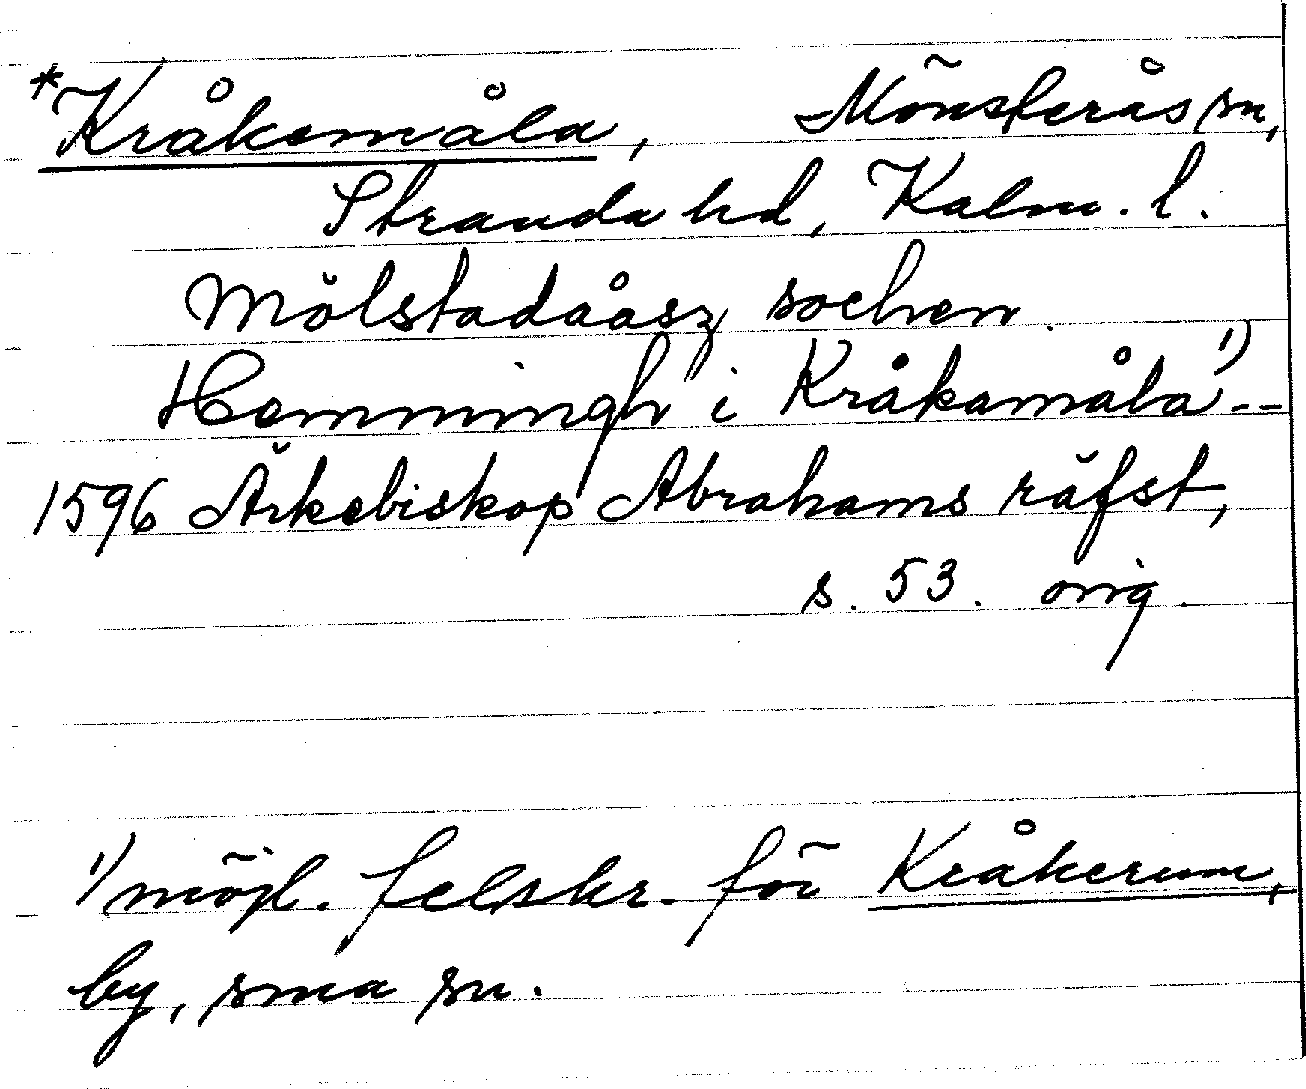 *Kråkemåla, Mönsterås sn,
Stranda hd, Kalm. l.
Mölstadaåsz sochen.
Hemmingh i Kråkamåla 1) --
1596 Ärkebiskop Abrahams räfst,
s. 53. orig.
1) möjl. felskr. för Kråkerum,
by, sma sn.